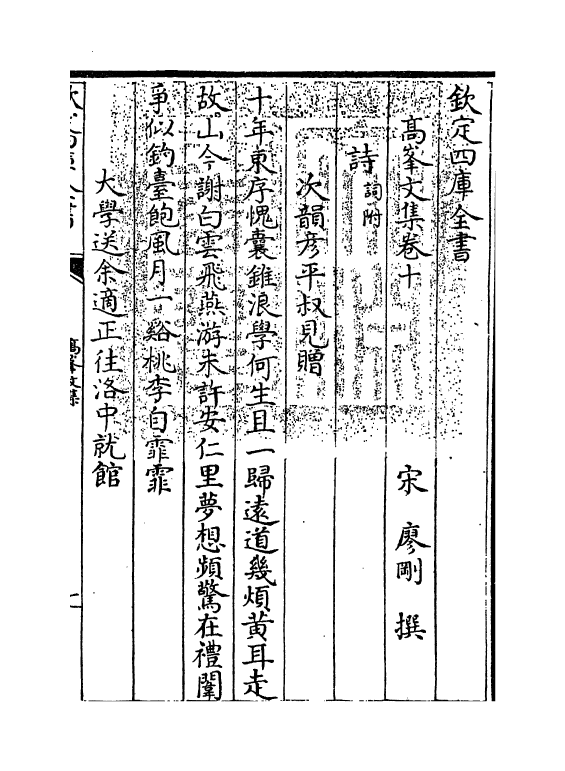 欽定四庫全書
髙峯文集卷十
宋 廖剛 撰
詩詞附
次韻彦平叔見贈
十年東序愧囊錐浪學何生且一歸遠道幾煩黄耳走
故山今謝白雲飛燕游未許安仁里夢想頻驚在禮闈
爭似釣臺飽風月一谿桃李自霏霏
大學送余適正往洛中就館
髙峯文集